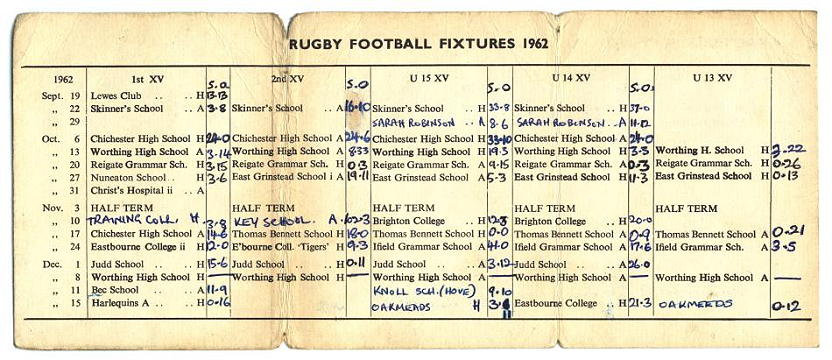 RUGBY FOOTBALL FIXTURES 1962
1962 1st XV S.O 2nd XV S.O U 15 XV S.O U 14 XV S.O U 13 XV
Sept. 19 Lewes Club .. .. H 13-13
„ 22 Skinner's School .. A 3-8 Skinner's School .. A 16-10 Skinner's School .. H 33-8 Skinner's School .. H 37-0
„ 29 SARAH ROBINSON .. A 8-6 SARAH ROBINSON .. A 11-12
Oct. 6 Chichester High School H 24-0 Chichester High School A 24-6 Chichester High School H 33-10 Chichester High School A 24-0
„ 13 Worthing High School A 3-14 Worthing High School A 8-33 Worthing High School H 19-3 Worthing High School H 3-3 Worthing H. School H 3-22
„ 20 Reigate Grammar Sch. H 3-15 Reigate Grammar Sch. H 0-3 Reigate Grammar Sch. A 9-15 Reigate Grammar Sch. A 0-3 Reigate Grammar Sch. H 0-26
„ 27 Nuneaton School .. H 3-6 East Grinstead School i A 19-11 East Grinstead School A 5-3 East Grinstead School H 11-3 East Grinstead School H 0-13
„ 31 Christ's Hospital ii .. A
Nov. 3 HALF TERM HALF TERM HALF TERM HALF TERM HALF TERM
„ 10 TRAINING COLL. H 3-8 KEY SCHOOL. A 102-3 Brighton College .. H 12-3 Brighton College .. H 20-0
„ 17 Chichester High School A 14-6 Thomas Bennett School H 18-0 Thomas Bennett School H 0-0 Thomas Bennett School A 0-9 Thomas Bennett School A 0-21
„ 24 Eastbourne College ii H 12-0 E'bourne Coll. 'Tigers' H 9-3 Ifield Grammar School A 41-0 Ifield Grammar Sch. H 17-6 Ifield Grammar Sch. A 3-5
Dec. 1 Judd School .. H 15-6 Judd School .. H 0-11 Judd School .. A 3-12 Judd School .. A 26-0
„ 8 Worthing High School H — Worthing High School H — Worthing High School A — Worthing High School A — Worthing High School A —
„ 11 Bec School .. .. A 11-9 KNOLL SCH. (HOVE) 9-10
„ 15 Harlequins A .. .. H 0-16 OAKMEADS H 3-11 Eastbourne College .. H 21-3 OAKMEEDS 0-12